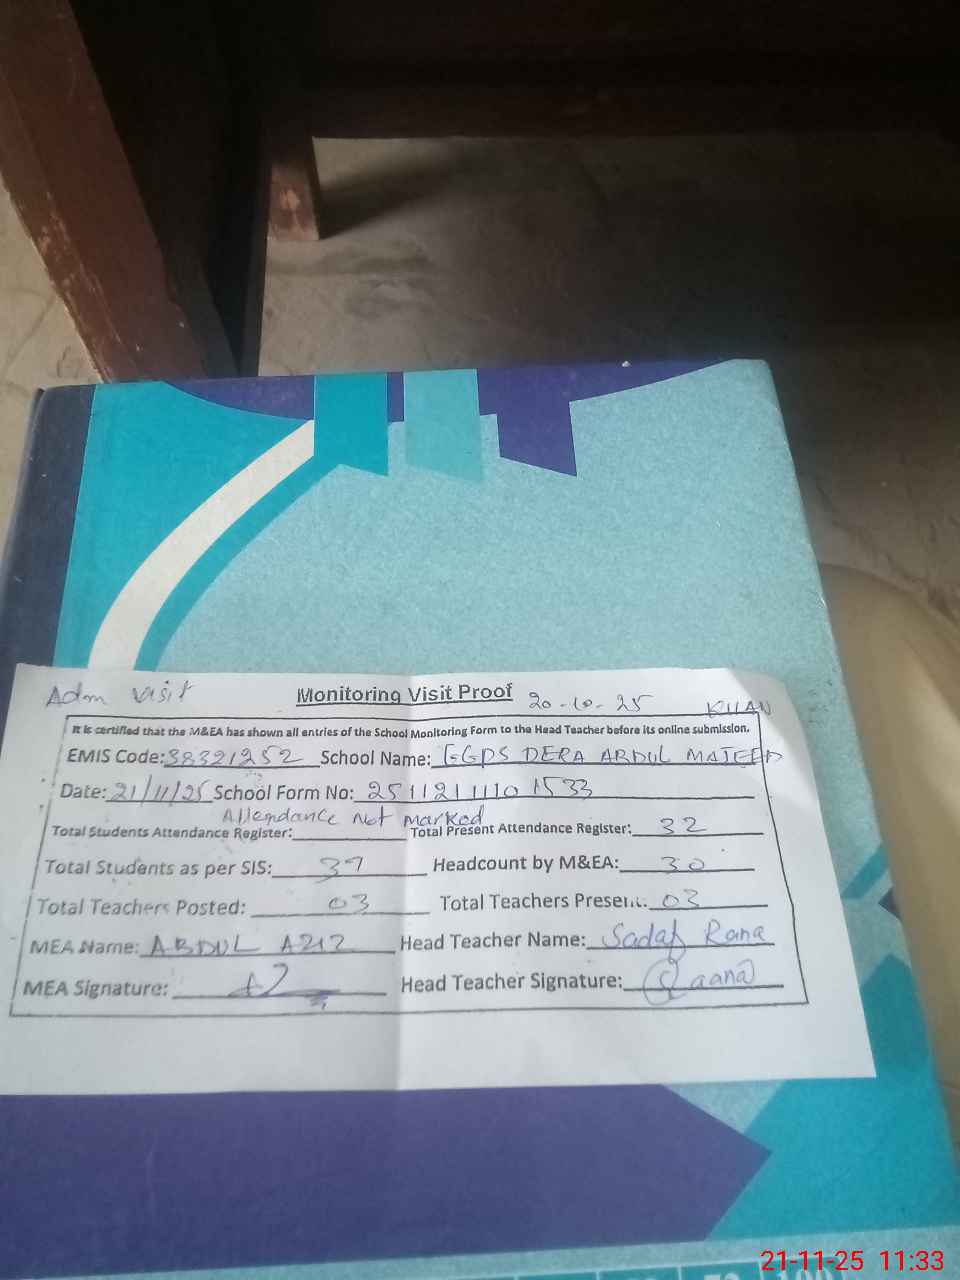 Adm visit Monitoring Visit Proof 20-10-25
KHAN
It is certified that the M&EA has shown all entries of the School Monitoring Form to the Head Teacher before its online submission.
EMIS Code: 38321252 School Name: GGPS DERA ABDUL MAJEED
Date: 21/11/25 School Form No: 2511211110 1533
Attendance Not Marked
Total Students Attendance Register: Total Present Attendance Register: 32
Total Students as per SIS: 37 Headcount by M&EA: 30
Total Teachers Posted: 03 Total Teachers Present: 03
MEA Name: ABDUL AZIZ Head Teacher Name: Sadaf Rana
MEA Signature: Head Teacher Signature: Raana
21-11-25 11:33